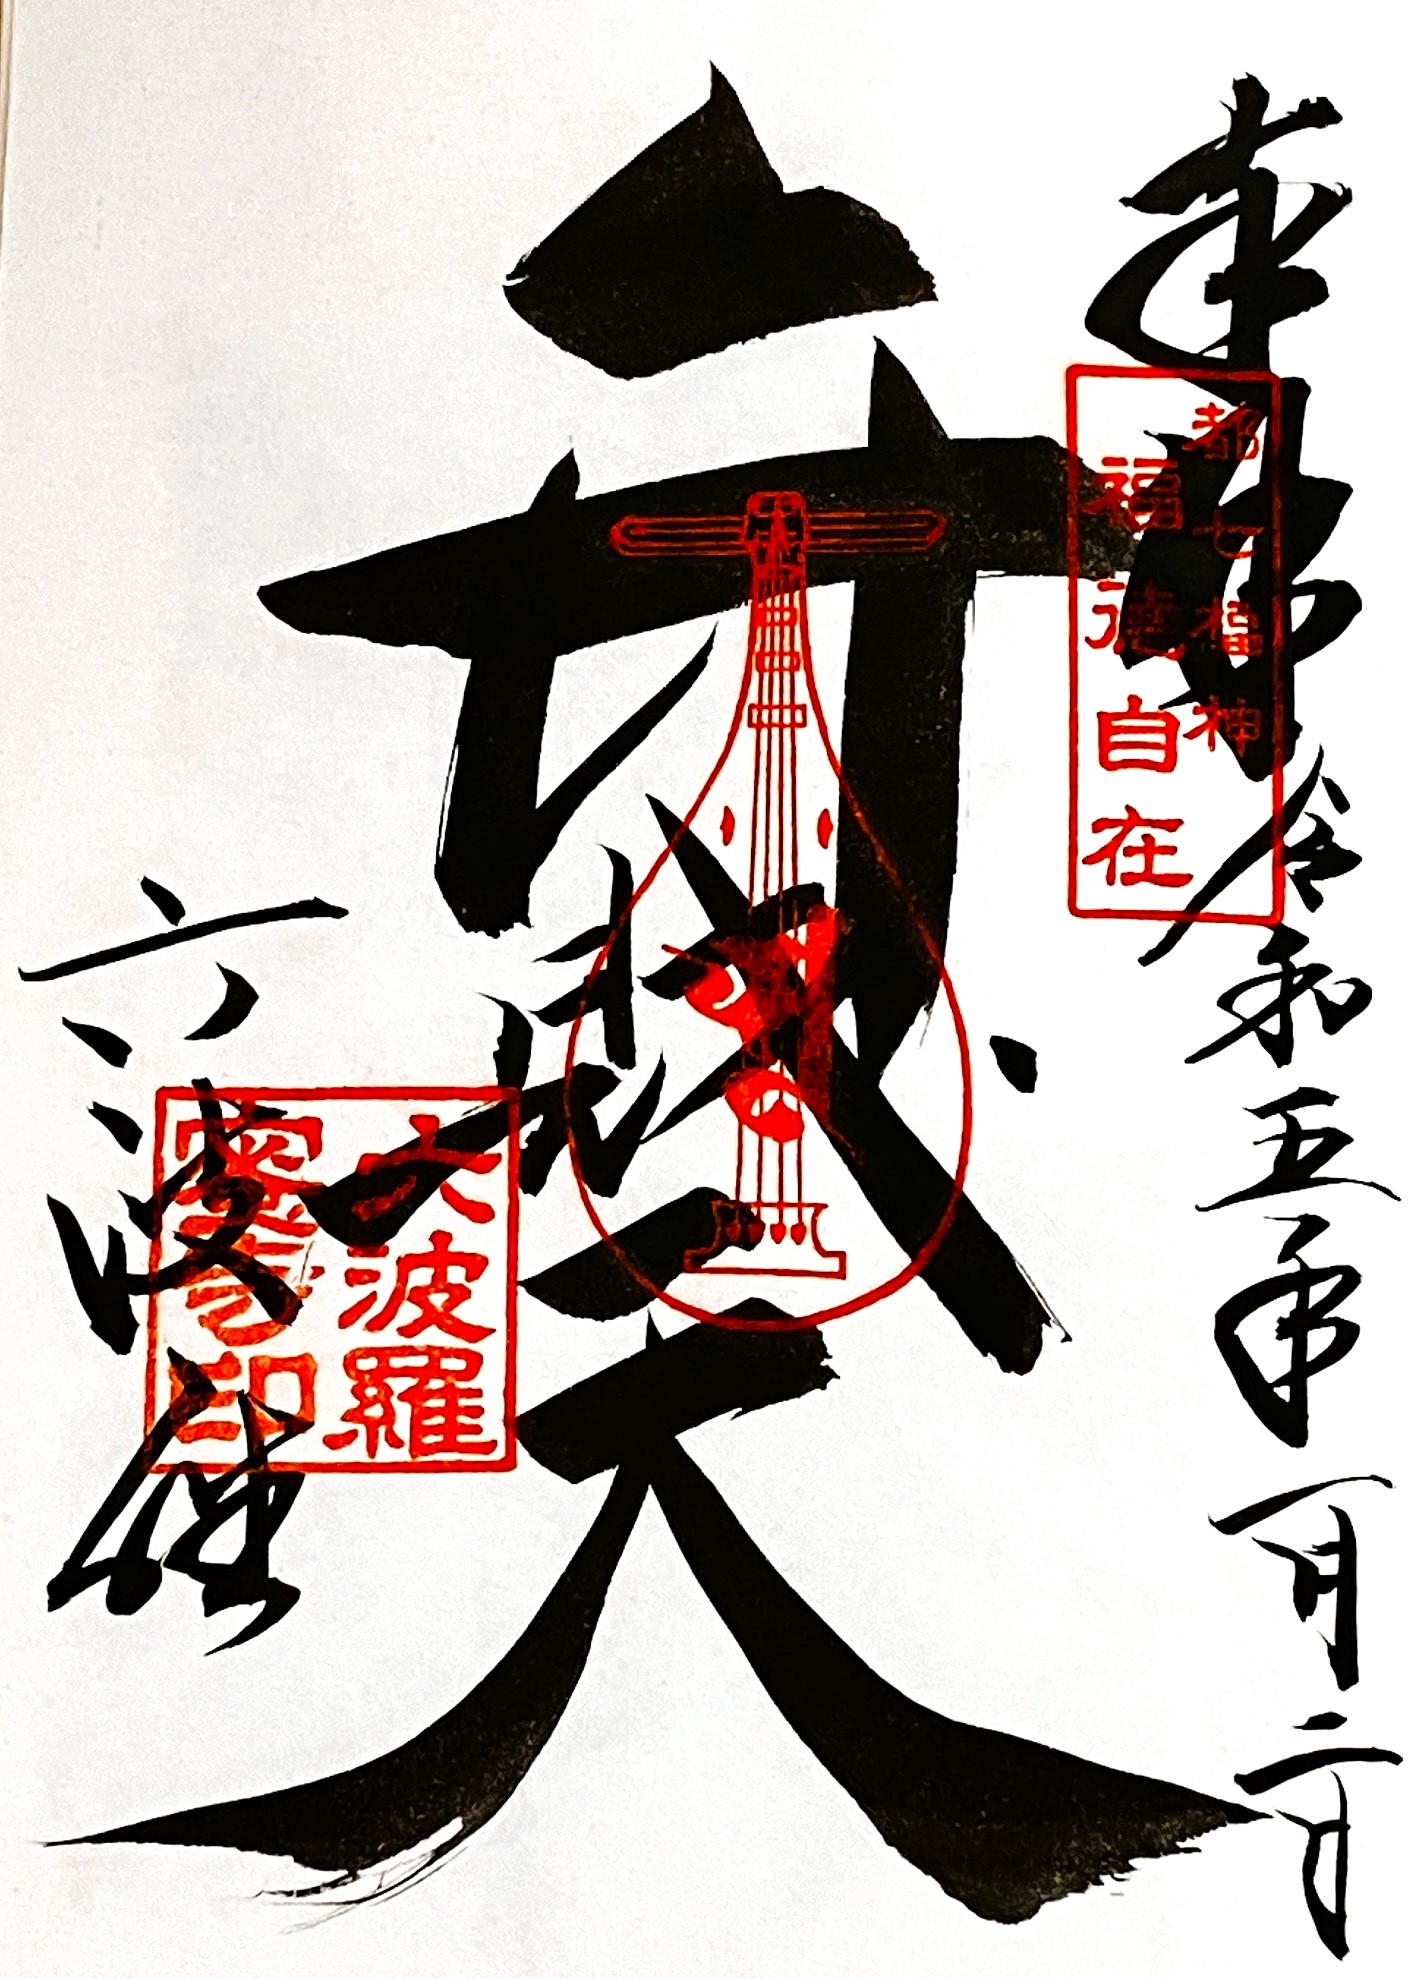 奉拝
令和五年一月二日
都七福神
福徳自在
天
六波羅
蜜寺印
六波